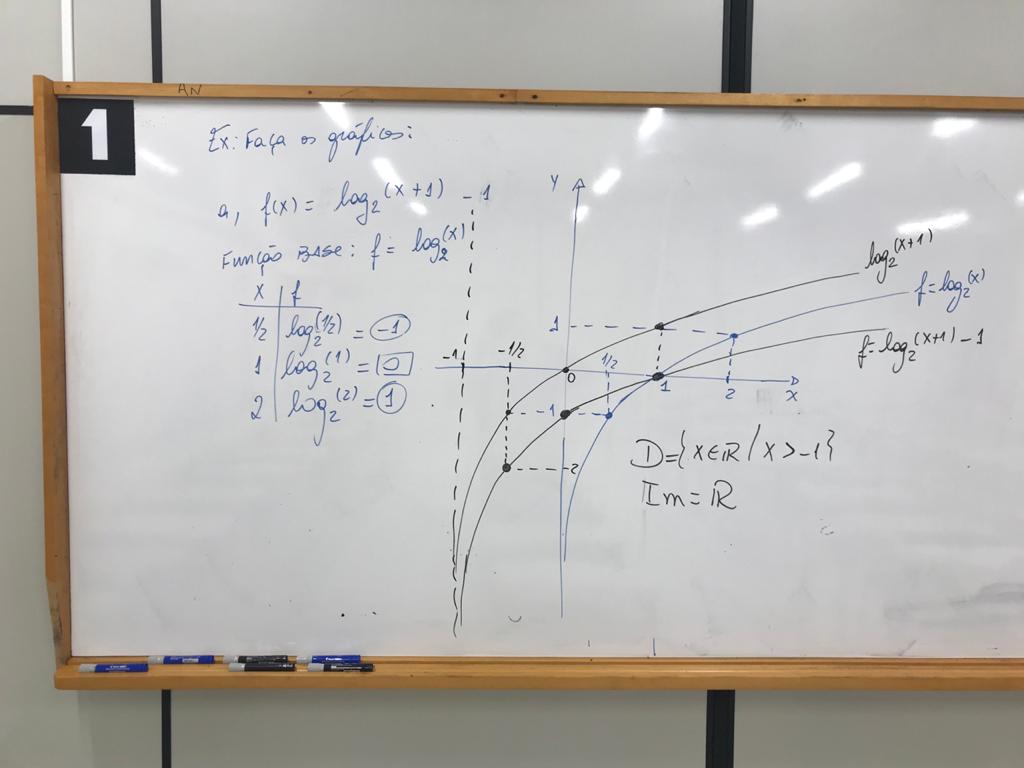 AN
1
Ex: Faça os gráficos:
a, f(x) = log₂(x+1) - 1
Função BASE: f = log₂(x)
x | f
1/2 | log₂(1/2) = -1
1 | log₂(1) = 0
2 | log₂(2) = 1
Y
log₂(x+1)
f=log₂(x)
f=log₂(x+1) - 1
1
-1 -1/2 0 1/2 1 2 X
-1
-2
D={x∈ℝ/x>-1}
Im=ℝ